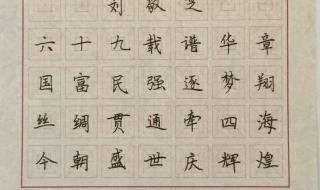 刘 敬
六十九载谱华章
国富民强逐梦翔
丝绸贯通牵四海
今朝盛世庆辉煌